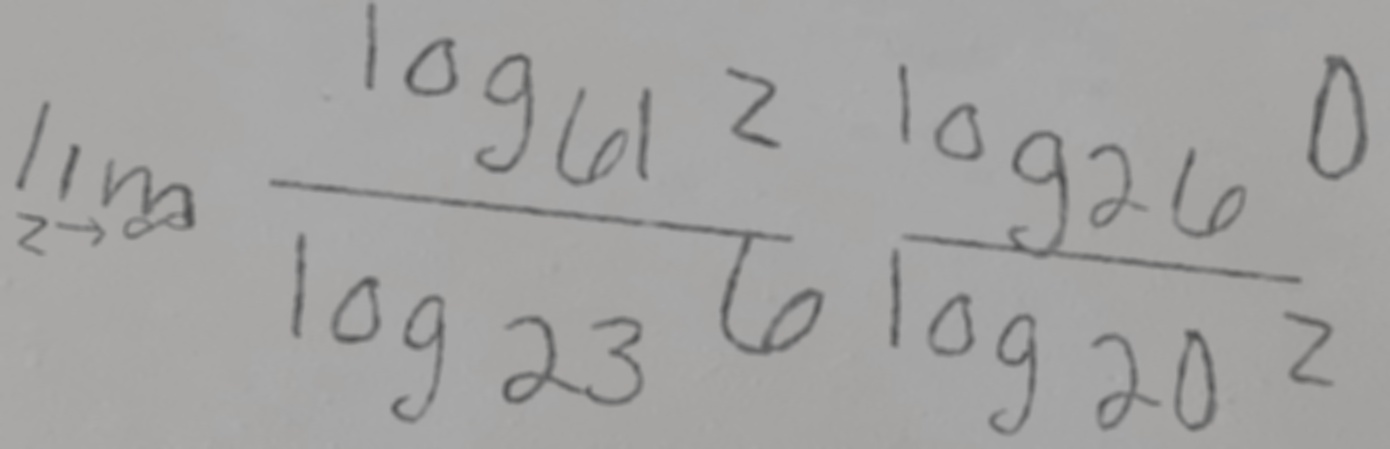 \lim_{z \to \infty} \frac{\log_{61} z}{\log_{23} 6} \frac{\log_{26} 0}{\log_{20} z}